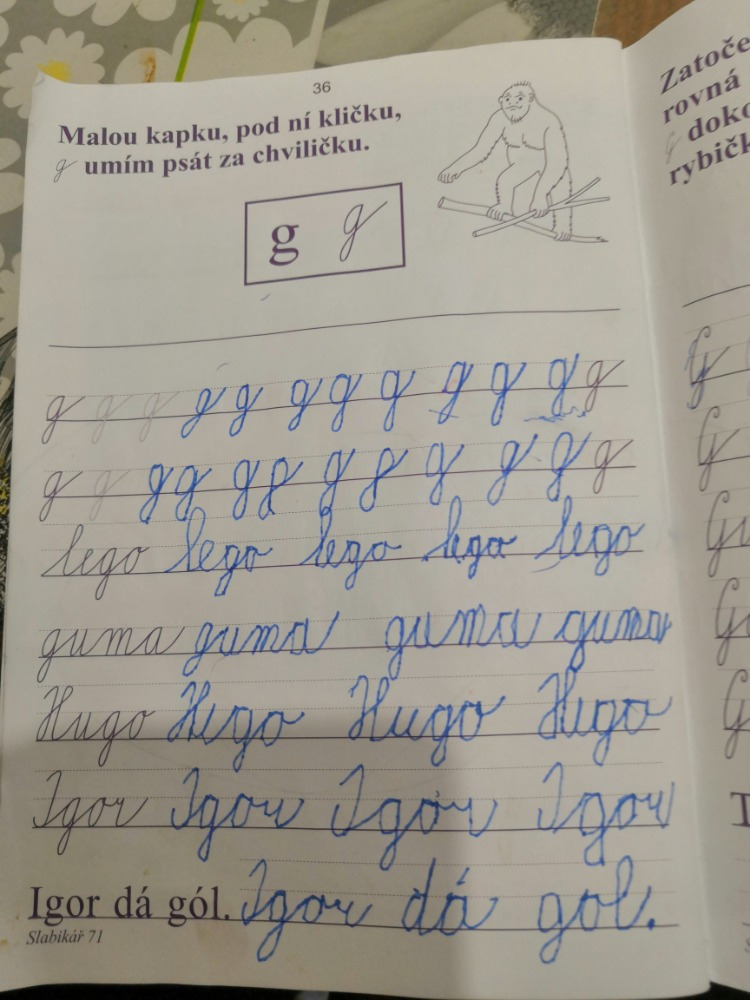 36
Malou kapku, pod ní kličku,
g umím psát za chviličku.
g g
g g g g g g g g g g g g
g g g g g g g g g g g g
lego lego lego lego lego
guma guma guma guma
Hugo Hugo Hugo Hugo
Igor Igor Igor Igor
Igor dá gól. Igor dá gol.
Slabikář 71
Zatoče
rovná
G doko
rybičk
G
G
G
G
G